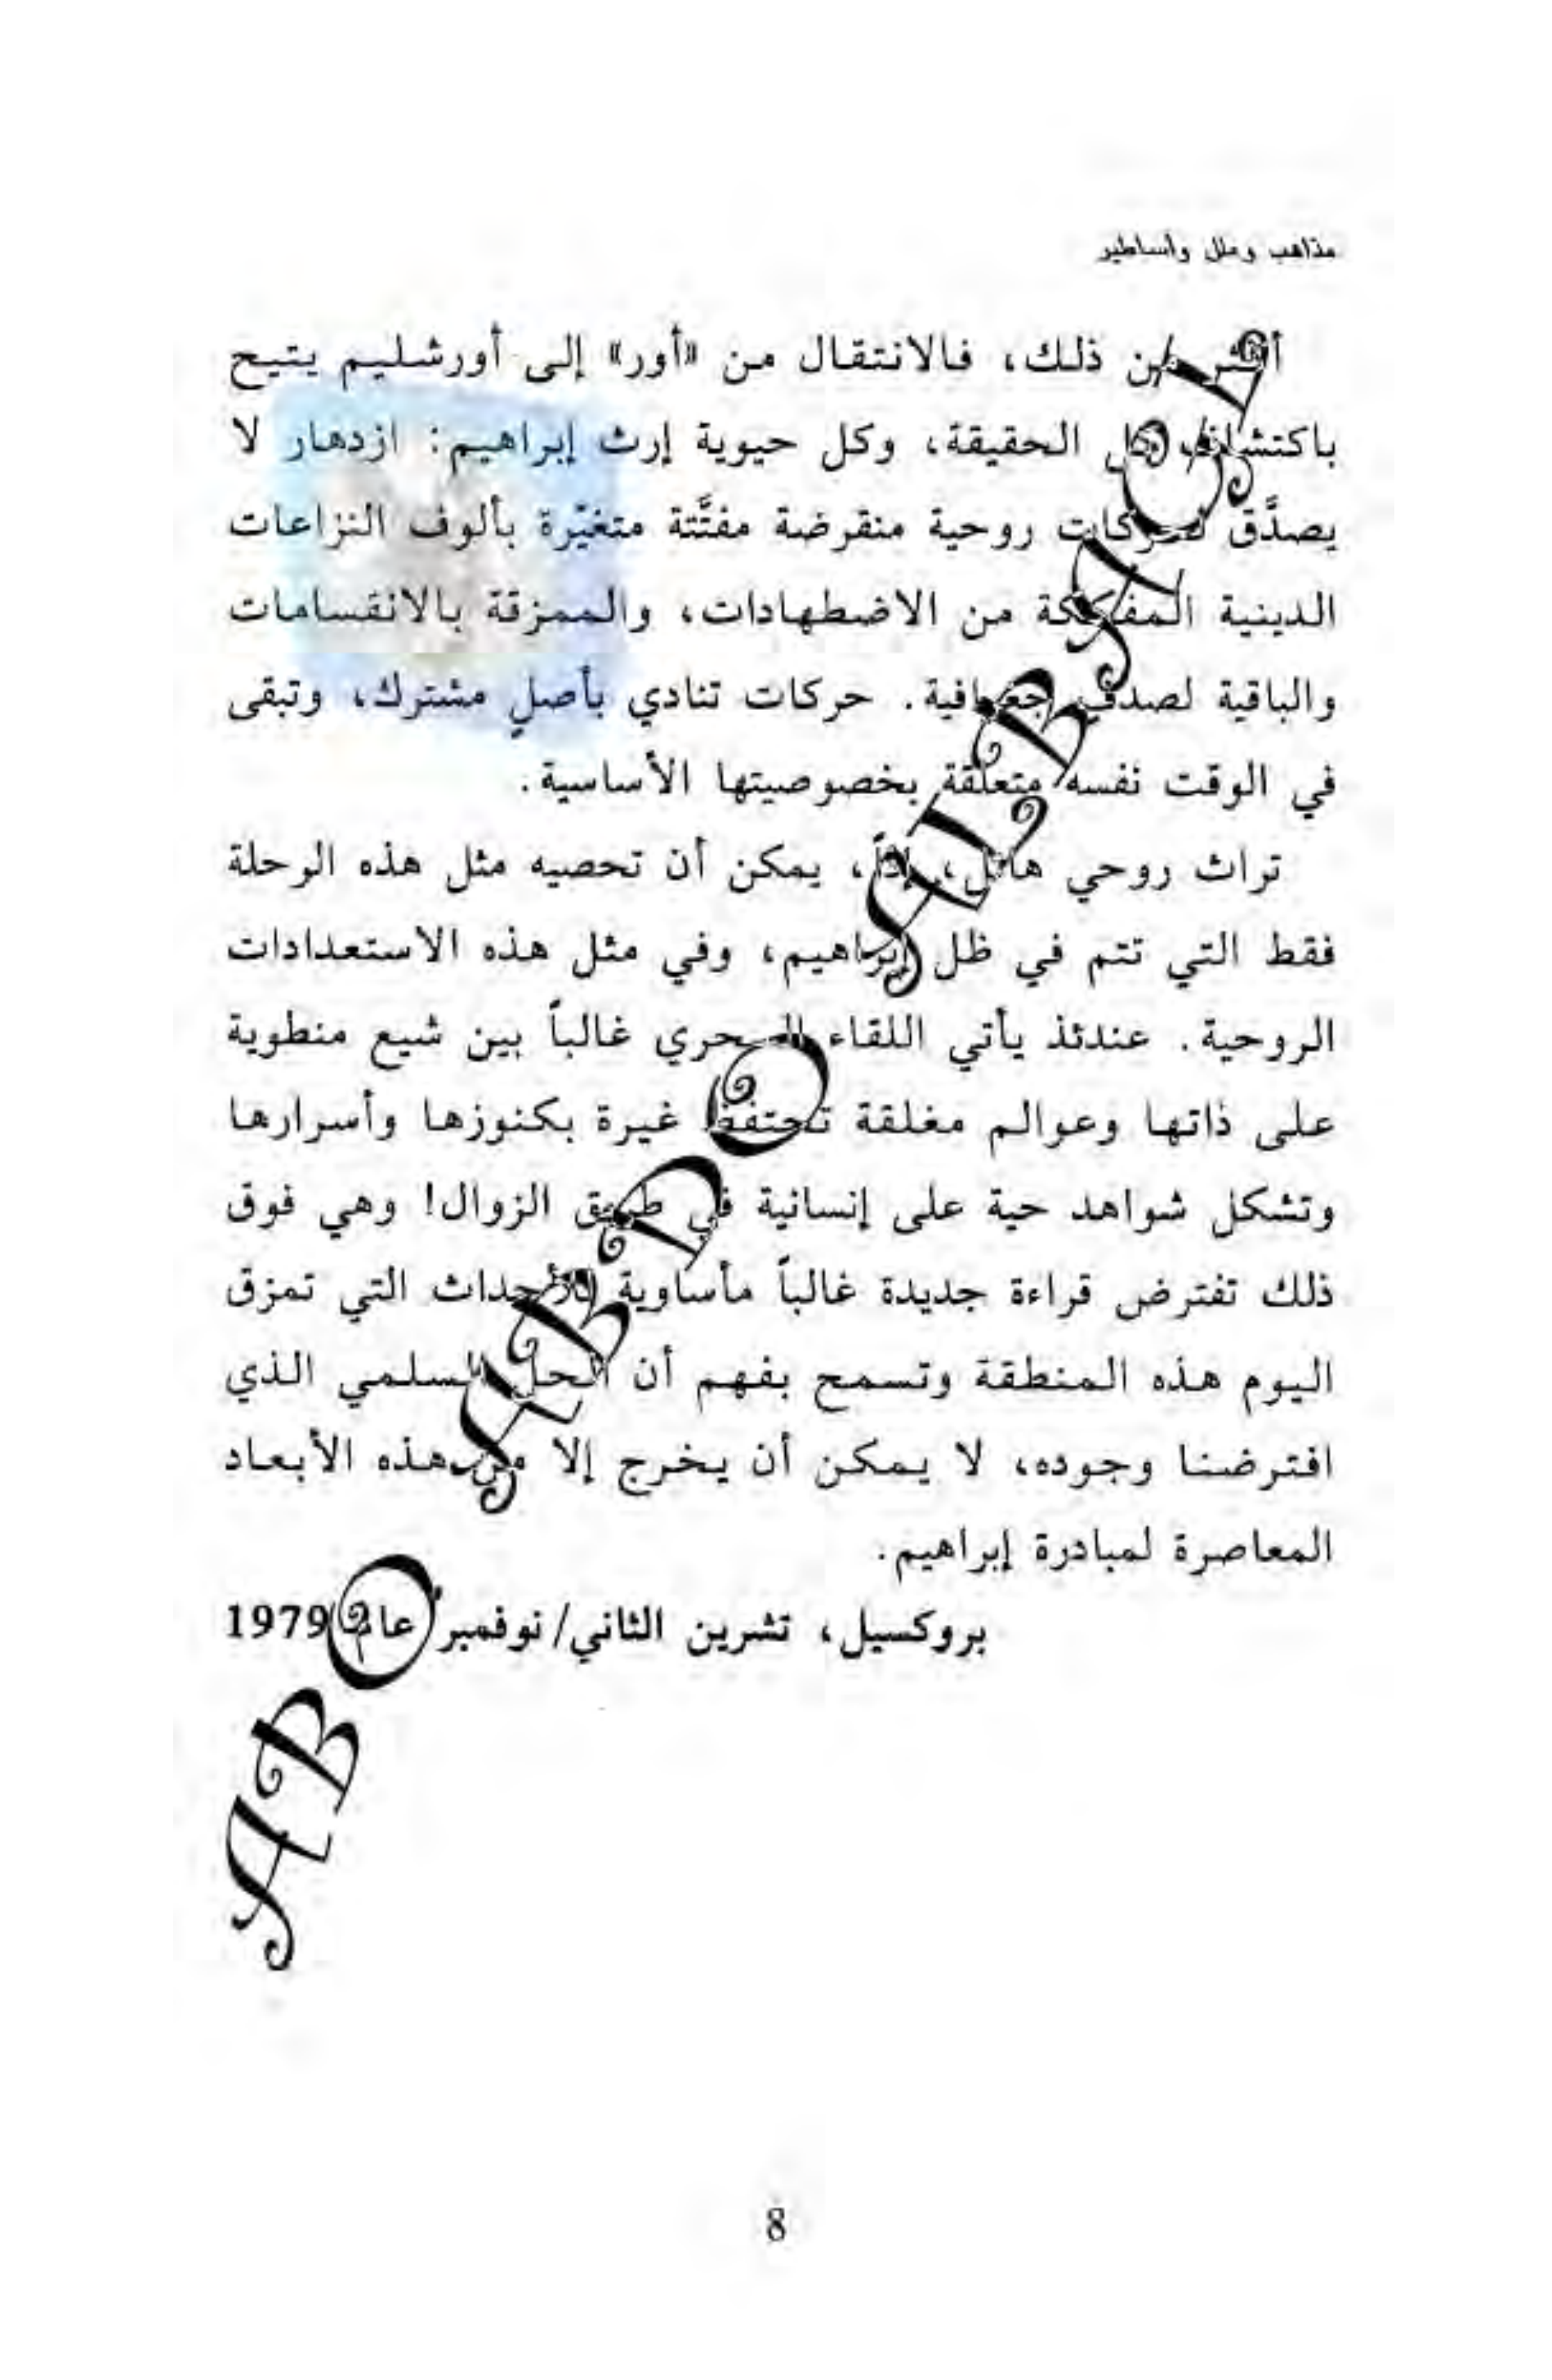 مذاهب وملل وأساطير
أكثر من ذلك، فالانتقال من «أور» إلى أورشليم يتيح
باكتشاف كل الحقيقة، وكل حيوية إرث إبراهيم: ازدهار لا
يصدَّق لحركات روحية منقرضة مفتَّتة متغيّرة بألوف النزاعات
الدينية المفككة من الاضطهادات، والممزقة بالانقسامات
والباقية لصدف جغرافية. حركات تنادي بأصلٍ مشترك، وتبقى
في الوقت نفسه متعلقة بخصوصيتها الأساسية.
تراث روحي هائل، إذاً، يمكن أن تحصيه مثل هذه الرحلة
فقط التي تتم في ظل إبراهيم، وفي مثل هذه الاستعدادات
الروحية. عندئذ يأتي اللقاء السحري غالباً بين شيع منطوية
على ذاتها وعوالم مغلقة تحتفظ غيرة بكنوزها وأسرارها
وتشكل شواهد حية على إنسانية في طريق الزوال! وهي فوق
ذلك تفترض قراءة جديدة غالباً مأساوية للأحداث التي تمزق
اليوم هذه المنطقة وتسمح بفهم أن الحل السلمي الذي
افترضنا وجوده، لا يمكن أن يخرج إلا من هذه الأبعاد
المعاصرة لمبادرة إبراهيم.
بروكسيل، تشرين الثاني/نوفمبر عام 1979
8